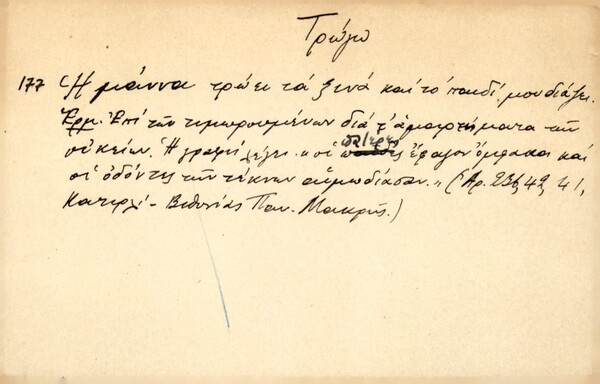 Τρώγω
177 Ἡ μάννα τρώει τά ξινά καί τό παιδί μουδιάζει.
Ἑρμ. Ἐπί τῶν τιμωρουμένων διά τ' ἁμαρτήματα τῶν
οἰκείων. Ἡ γραφή λέγει "οἱ πατέρες ἔφαγον ὄμφακα καί
οἱ ὀδόντες τῶν τέκνων ᾑμωδίασαν." (Ἀρ. 236, 42, 41,
Κατιρλί - Βιθυνίας Παν. Μακρῆς.)